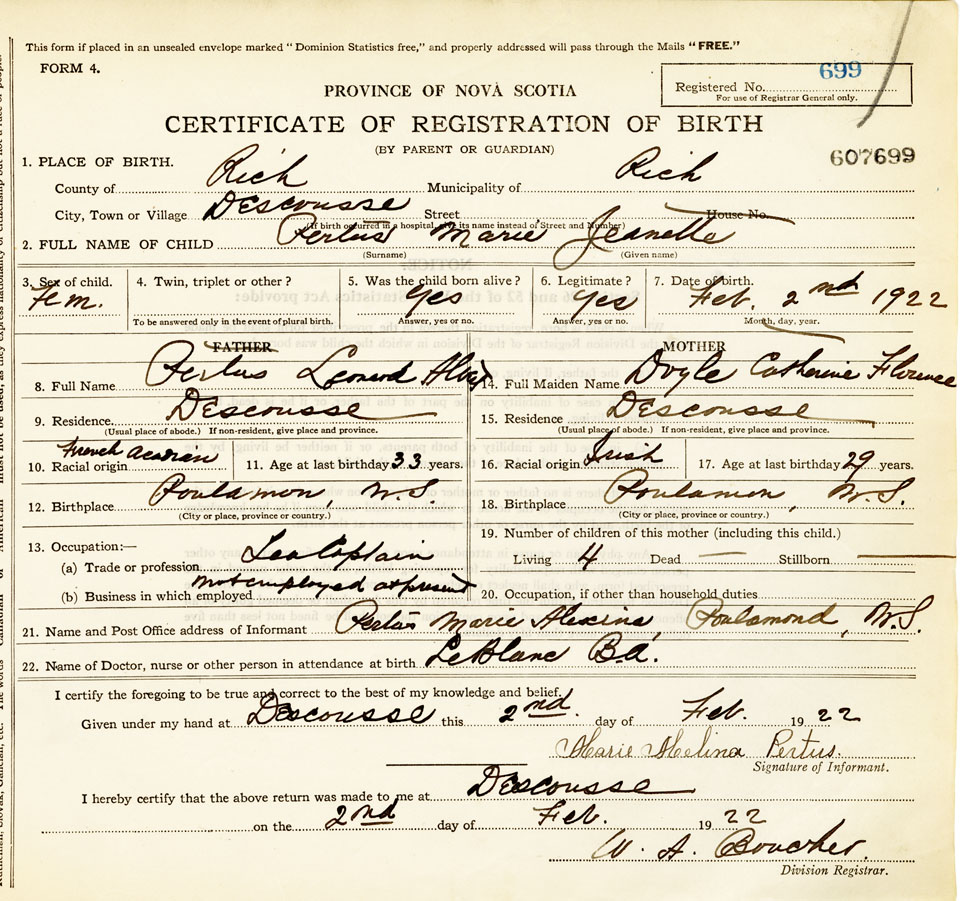 This form if placed in an unsealed envelope marked "Dominion Statistics free," and properly addressed will pass through the Mails "FREE."
FORM 4.
699
Registered No.
For use of Registrar General only.
PROVINCE OF NOVA SCOTIA
CERTIFICATE OF REGISTRATION OF BIRTH
(BY PARENT OR GUARDIAN)
607699
1. PLACE OF BIRTH.
County of Rich Municipality of Rich
City, Town or Village Descousse Street House No.
(If birth occurred in a hospital, give its name instead of Street and Number)
2. FULL NAME OF CHILD Pertus Marie Jeanette
(Surname) (Given name)
3. Sex of child. 4. Twin, triplet or other? 5. Was the child born alive? 6. Legitimate? 7. Date of birth.
Fem. Yes Yes Feb. 2nd 1922
To be answered only in the event of plural birth. Answer, yes or no. Answer, yes or no. Month, day, year.
FATHER
8. Full Name Pertus Leonard
9. Residence Descousse
(Usual place of abode.) If non-resident, give place and province.
10. Racial origin French Acadian 11. Age at last birthday 33 years.
12. Birthplace Poulamon, N.S.
(City or place, province or country.)
13. Occupation:—
(a) Trade or profession Sea Captain
(b) Business in which employed not employed at present
MOTHER
14. Full Maiden Name Doyle Catherine Florence
15. Residence Descousse
(Usual place of abode.) If non-resident, give place and province.
16. Racial origin Irish 17. Age at last birthday 29 years.
18. Birthplace Poulamon, N.S.
(City or place, province or country.)
19. Number of children of this mother (including this child.)
Living 4 Dead — Stillborn —
20. Occupation, if other than household duties
21. Name and Post Office address of Informant Pertus Marie Poulamond, N.S.
22. Name of Doctor, nurse or other person in attendance at birth LeBlanc B.A.
I certify the foregoing to be true and correct to the best of my knowledge and belief.
Given under my hand at Descousse this 2nd day of Feb. 1922
Marie Pertus.
Signature of Informant.
I hereby certify that the above return was made to me at Descousse
on the 2nd day of Feb. 1922
W. A. Boucher.
Division Registrar.